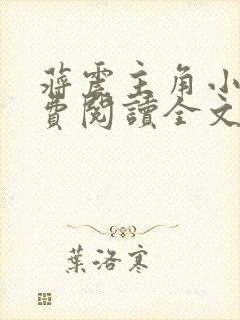 蔣震主角小
費閱讀全文
葉洛寒